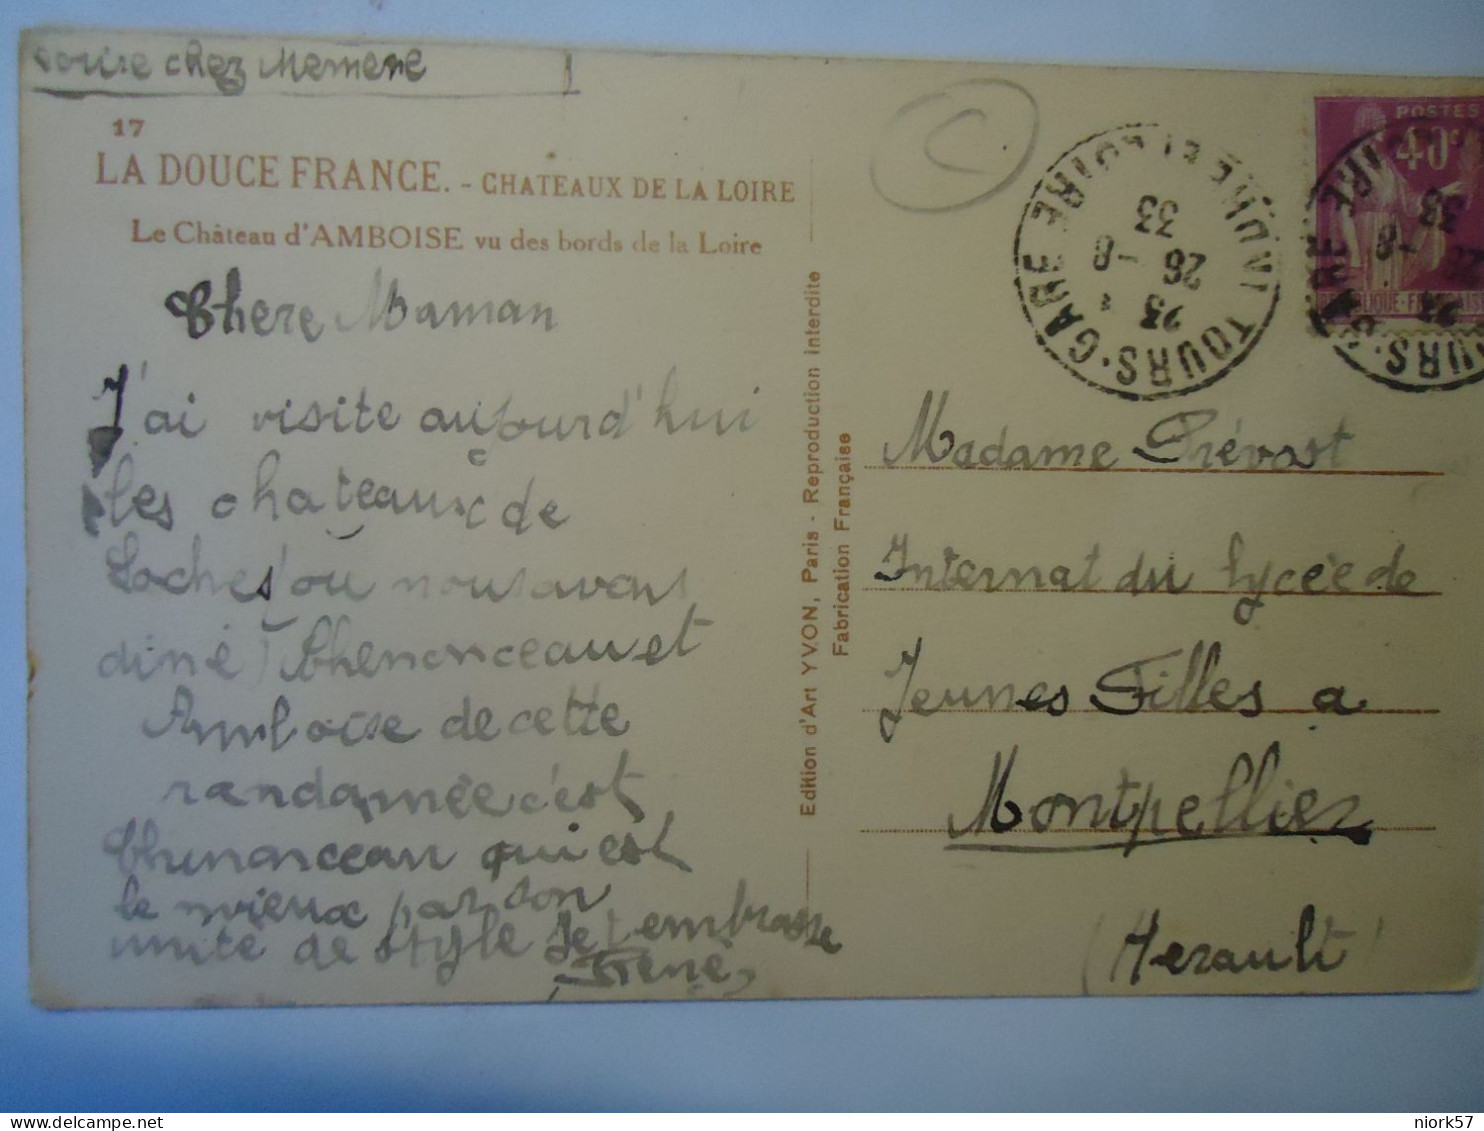 Louise chez Memere
17
LA DOUCE FRANCE. - CHATEAUX DE LA LOIRE
Le Château d'AMBOISE vu des bords de la Loire
Chere Maman
J'ai visite aujourd'hui
les chateaux de
Loches (ou nous avons
diné) Chenonceau et
Amboise de cette
randamée c'est
Chenonceau qui est
le mieux par son
unité de style Je t'embrasse
Irene
Edition d'Art YVON, Paris - Reproduction interdite
Fabrication Française
C
TOURS-GARE
INDRE ET LOIRE
23
26 - 8
33
POSTES
40c
REPUBLIQUE-FRANÇAISE
TOURS-GARE
23
26 - 8
33
Madame Prévost
Internat du lycée de
Jeunes Filles a
Montpellier
(Herault)
niork57